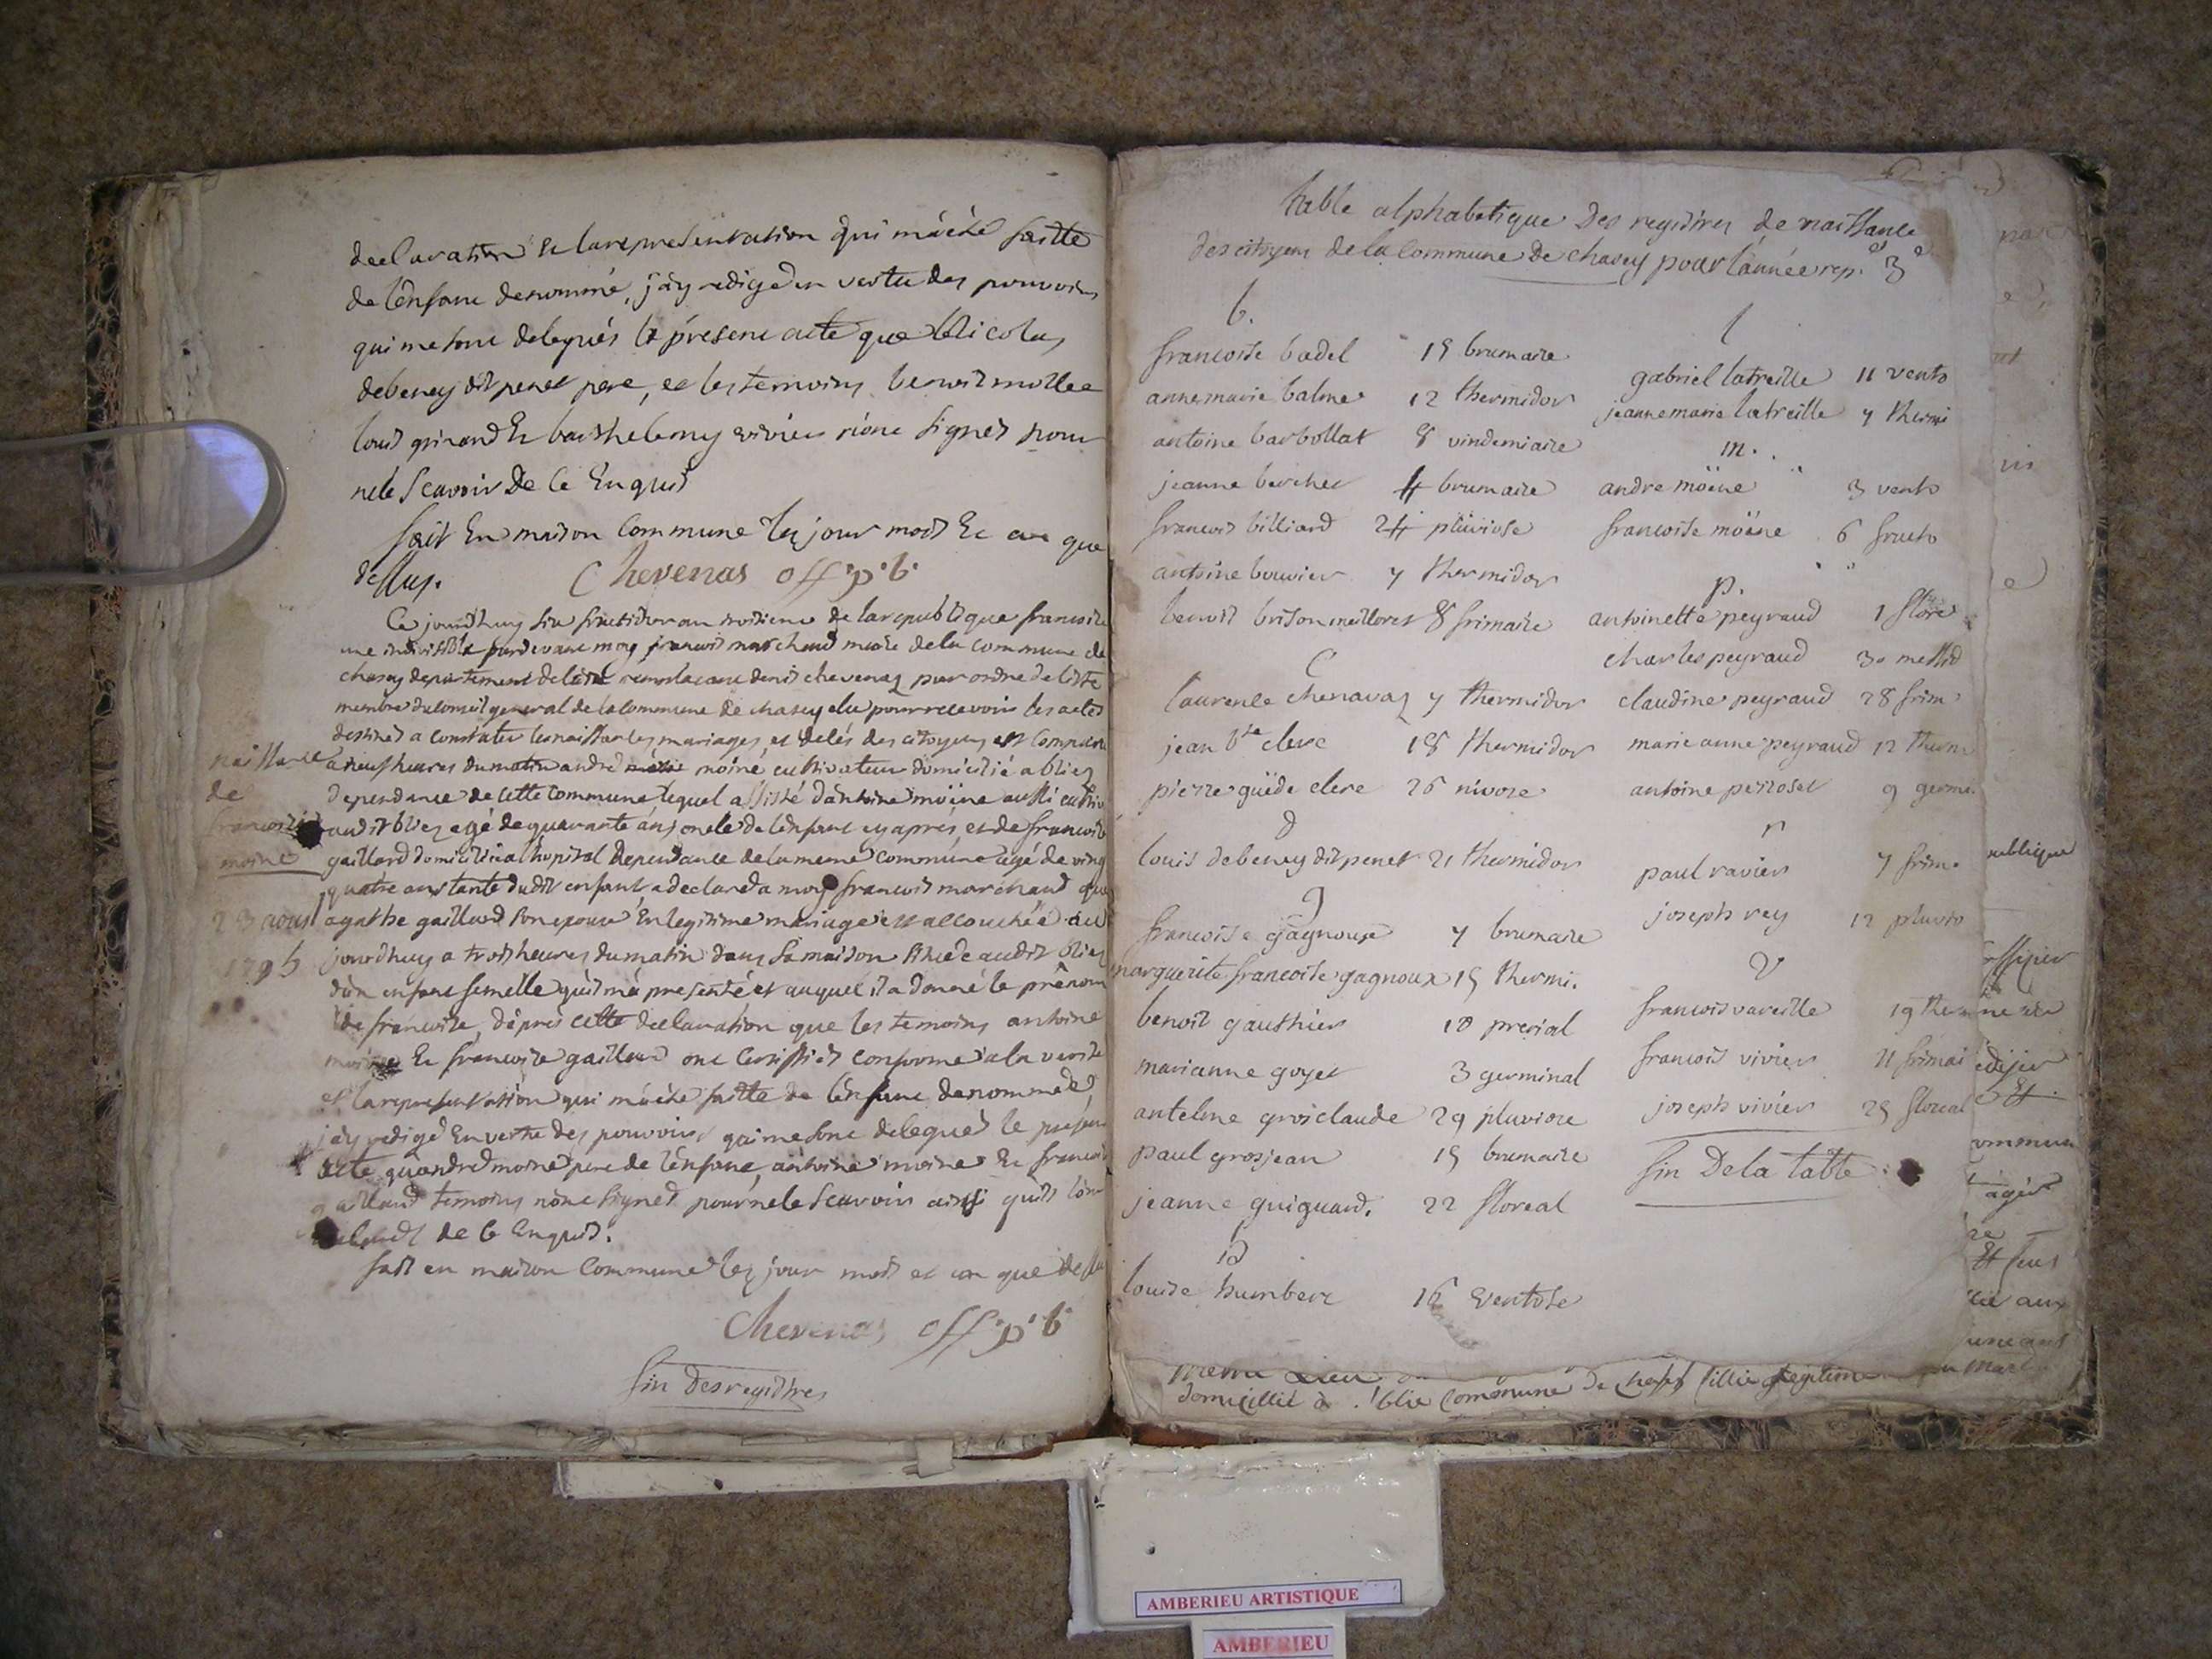 declaration & la representation qui m'a été faitte
de l'enfant denommé, j'ay redigé en vertu des pouvoirs
qui me sont delegués le présent acte que Nicolas
debeney dit penet pere, et les temoins benoit mollet
louis grirand Et barthelemy vivier n'ont signés pour
ne le scavoir De ce Enquis
fait En maison Commune les jour mois Et an que
dessus. Chevenas off. p. b.
Ce jourdhuy six fructidor an troisieme de la republique francoise
une indivisible pardevant moy francois marchand maire de la commune de
chasey departement de l'ain remplacant denis chevenaz par ordre de liste
membre du conseil general de la Commune de chasey elu pour recevoir les actes
destinés a constater les naissances, mariages, et décés des citoyens est comparu
a neuf heures du matin andré moine cultivateur domicilié a blies
dependance de cette Commune lequel assisté d'antoine moine aussi cultiv
audit blies agé de quarante ans oncle de l'enfant cy aprés, et de francoise
gaillard domiciliée a lhopital Dependance de la meme commune agé de vingt
quatre ans tante dudit enfant a declaré a moy francois marchand que
agathe gaillard son epouse En legitime mariage est accouchée au
jourdhuy a trois heures du matin dans sa maison située audit blies
d'un enfant femelle qu'il m'a presenté et auquel il a donné le prénom
de francoise, d'aprés cette declaration que les temoins antoine
moine Et francoise gaillard ont certiffiés conforme a la verité
et la representation qui m'a été faitte de l'enfant denommé,
j'ay redigé En vertu des pouvoirs qui me sont delegués le présent
acte qu'andré moine pere de l'enfant, antoine moine Et francoise
gaillard temoins n'ont signés pour ne le scavoir ainsi quils l'ont
de ce Enquis.
fait en maison Commune les jour mois et an que dessu
Chevenas off. p. b
fin des registres
naissance
de
francoise
moine
23 aoust
1795
table alphabetique Des registres de naissance
des citoyens de la Commune De chasey pour l'année rep. 3e
b.
francoise badel 15 brumaire
annemarie balme 12 thermidor
antoine barbollat 8 vindemiaire
jeanne bercher 4 brumaire
francois billiard 24 pluviose
antoine bouvier 7 thermidor
benoit brison meilloret 8 frimaire
C
laurence chenavaz 7 thermidor
jean bte clerc 18 thermidor
pierre guëde clerc 26 nivore
d
louis debeney dit penet 21 thermidor
g
francoise gagnoux 7 brumaire
marguerite francoise gagnoux 15 thermi.
benoit gauthier 18 prerial
marianne goyet 3 germinal
antelme grosclaude 29 pluviore
paul grosjean 15 brumaire
jeanne guiguard. 22 floreal
h
louise humbert 16 ventose
l
gabriel latreille 11 vento
jeannemarie latreille 7 thermi
m.
andre möine 3 vento
francoise möine 6 fructo
p.
antoinette peyraud 1 flore
charles peyraud 30 messid
claudine peyraud 28 frim
marie anne peyraud 12 therm
antoine perroset 9 germi.
r
paul ravier 7 frim.
joseph rey 12 pluvio
V
francois vareille 19 therm
francois vivier 11 frimai
joseph vivier 25 floreal
fin De la table
publique
ommun
meme Lieu
domicillié à blie Commune De chasey fillie legitime
AMBERIEU ARTISTIQUE
AMBERIEU